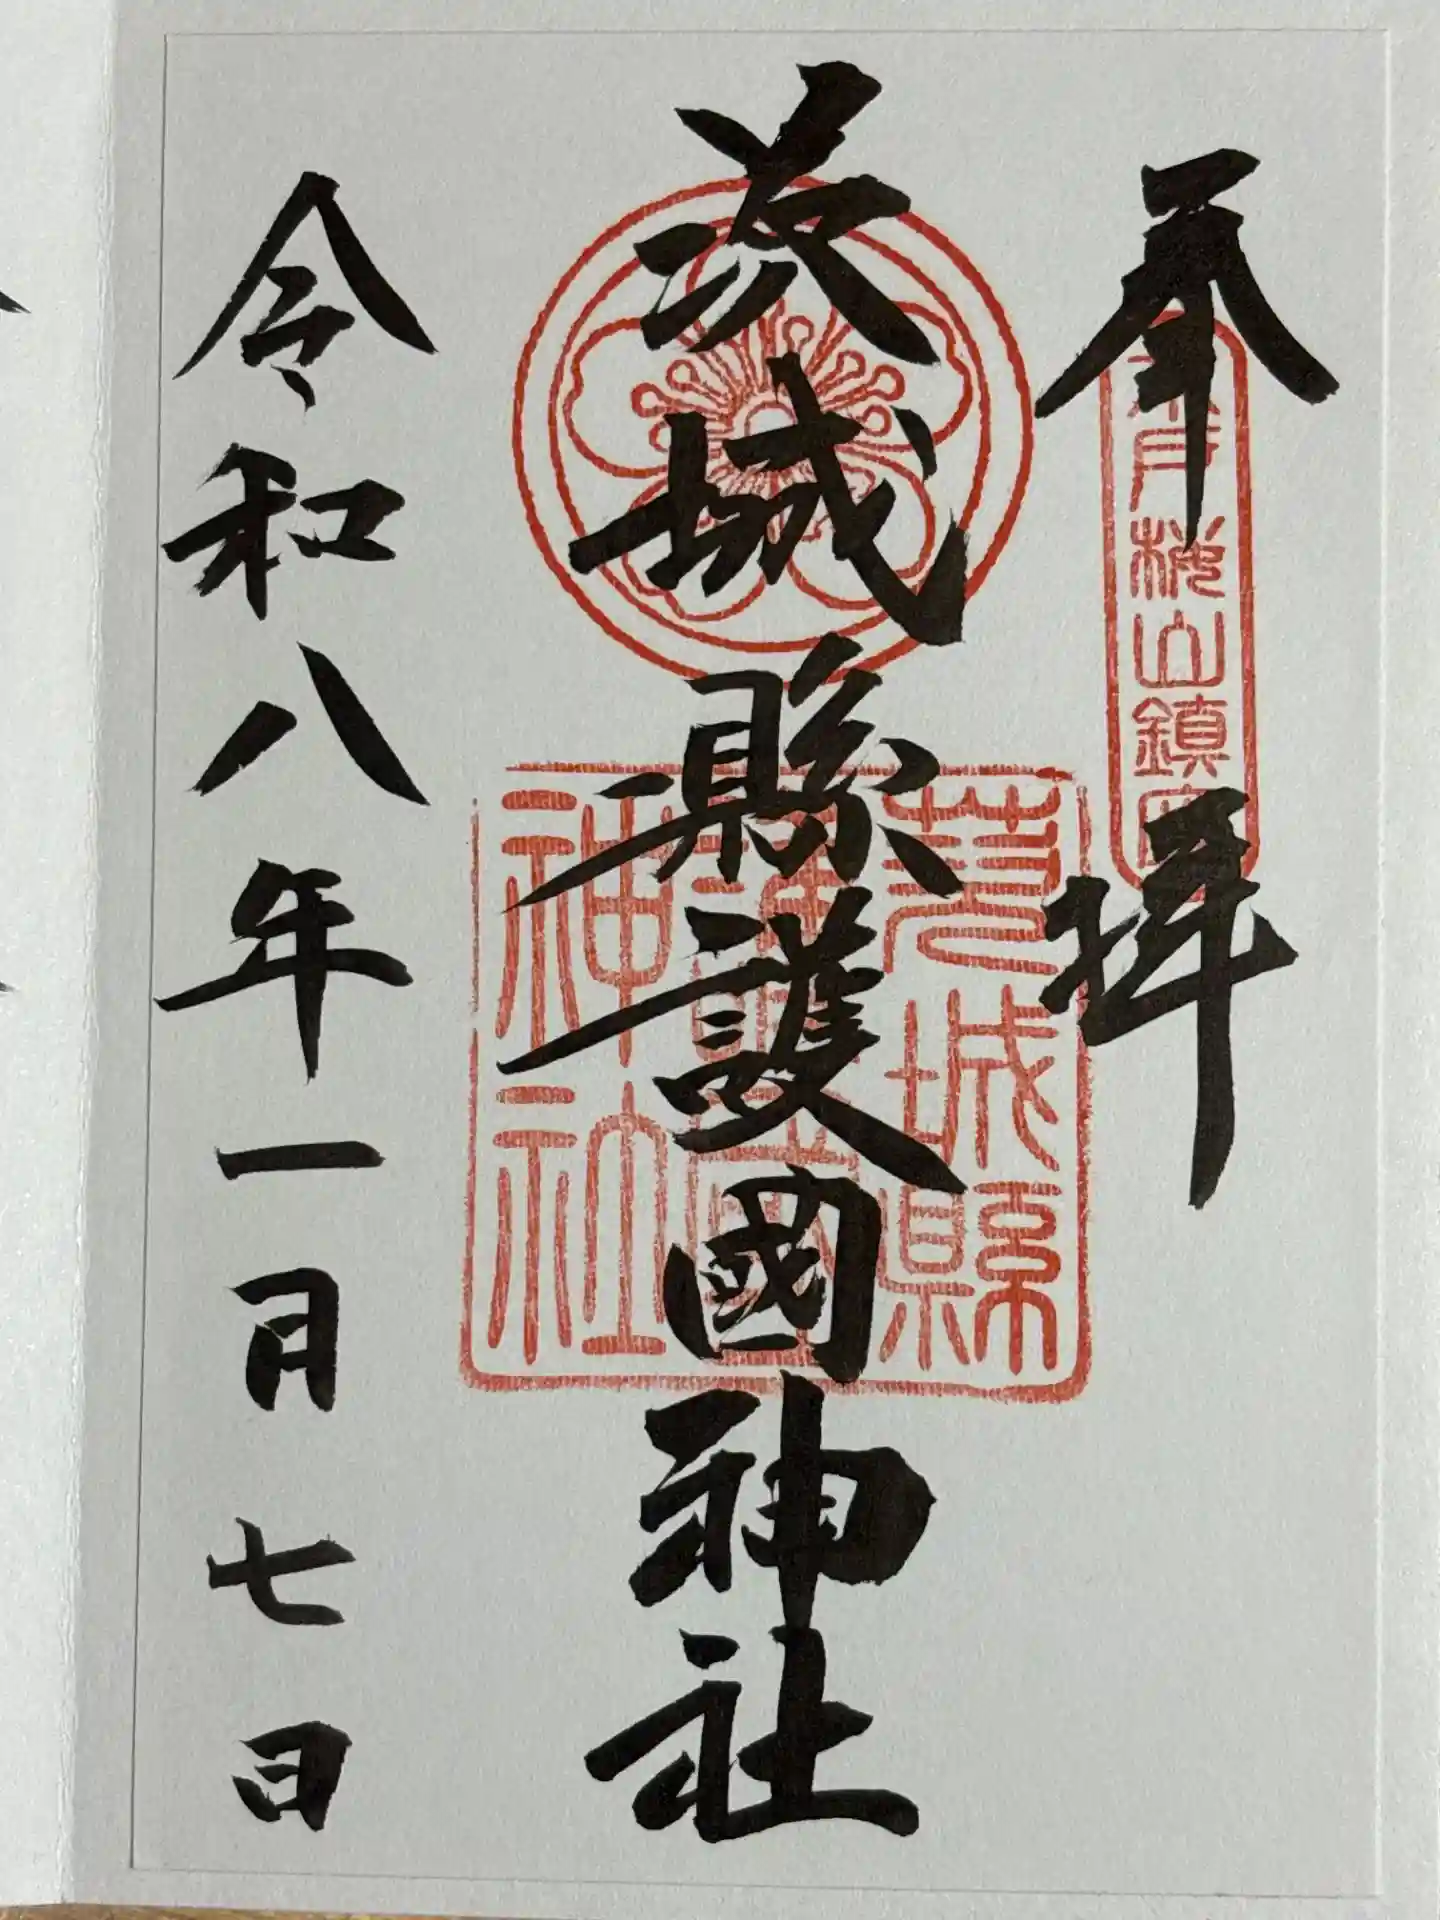 奉拝
桜山鎮
茨城縣護國神社
茨城縣
護國
神社
令和八年一月七日